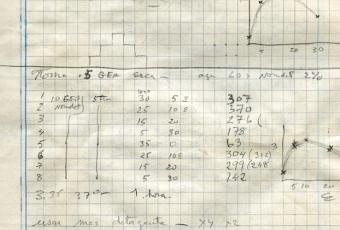 4 20 30
+ 5 GEA seca - agu 60 > Nonidet 2%
1 10 GEA 5 30 5 307
2 Nonidet 25 10 E 370
3 15 20 276 (
4 5 30 178
5 35 0 63
6 25 10 E 304 (312)
7 15 20 299 (248
8 5 30 142
3
5 10 20
E
3.35 37° - 1 hora
mas detergente - x4 x2